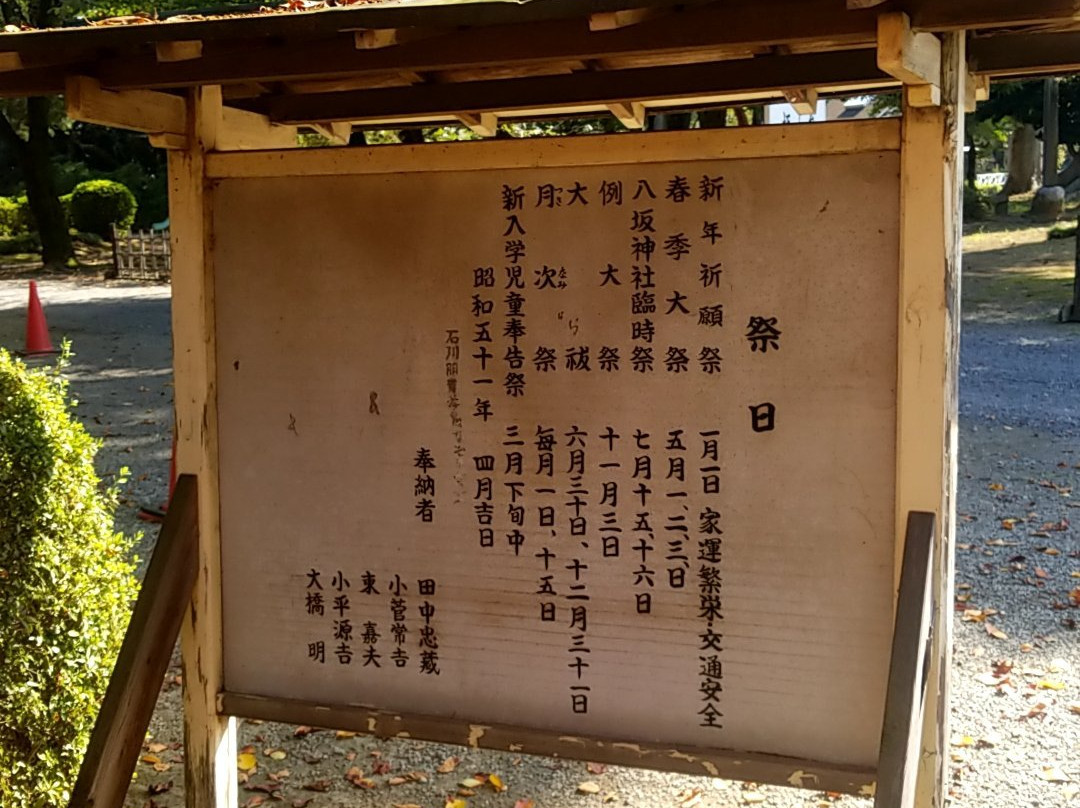 祭日
新年祈願祭 一月一日 家運繁栄・交通安全
春季大祭 五月一、二、三、日
八坂神社臨時祭 七月十五、十六日
例大祭 十一月三日
大祓 六月三十日、十二月三十一日
月次祭 毎月一日、十五日
新入学児童奉告祭 三月下旬中
昭和五十一年 四月吉日
石川
奉納者
田中忠蔵
小菅常吉
東 嘉夫
小平源吉
大橋 明